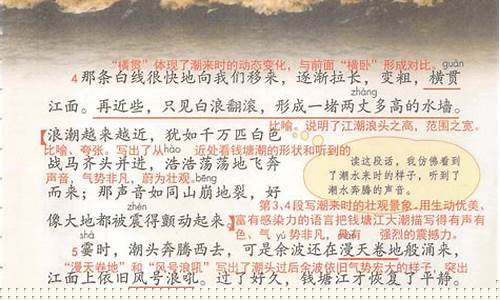 "横贯"体现了潮来时的动态变化，与前面"横卧"形成对比。guàn
4 那条白线很快地向我们移来，逐渐拉长，变粗，横贯
zhàng
江面。再近些，只见白浪翻滚，形成一堵两丈多高的水墙。
浪潮越来越近，犹如千万匹白色 比喻。说明了江潮浪头之高，范围之宽。
比喻、夸张。写出了从hào 近处看钱塘潮的形状和听到的
战马齐头并进，浩浩荡荡地飞奔
声音，气势非凡，蔚为壮观。bēng
而来；那声音如同山崩地裂，好
读这段话，我仿佛看到
了潮水来时的样子，听到了
潮水奔腾的声音。
第3、4段写潮来时的壮观景象。用生动优美、
像大地都被震得颤动起来。富有感染力的语言把钱塘江大潮描写得有声有
shà 色、气 yú 势非凡，具有 强烈的震撼力。
5 霎时，潮头奔腾西去，可是余波还在漫天卷地般涌来，
"漫天卷地"和"风号浪吼"写出了潮头过后余波依旧气势宏大的样子，突出
江面上依旧风号浪吼。过了好久，钱塘江才恢复了平静。